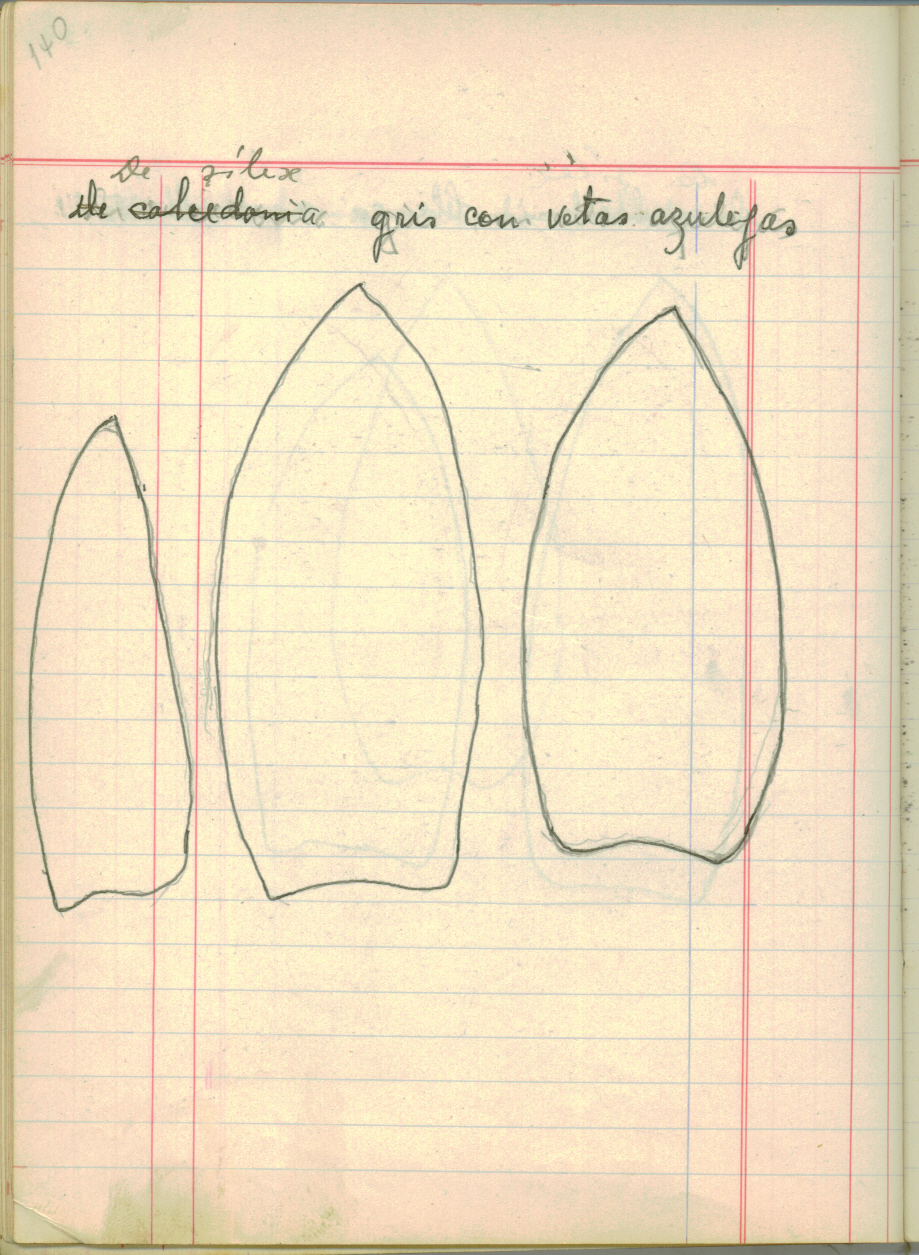 140
De sílex
de calcedonia gris con vetas azulejas